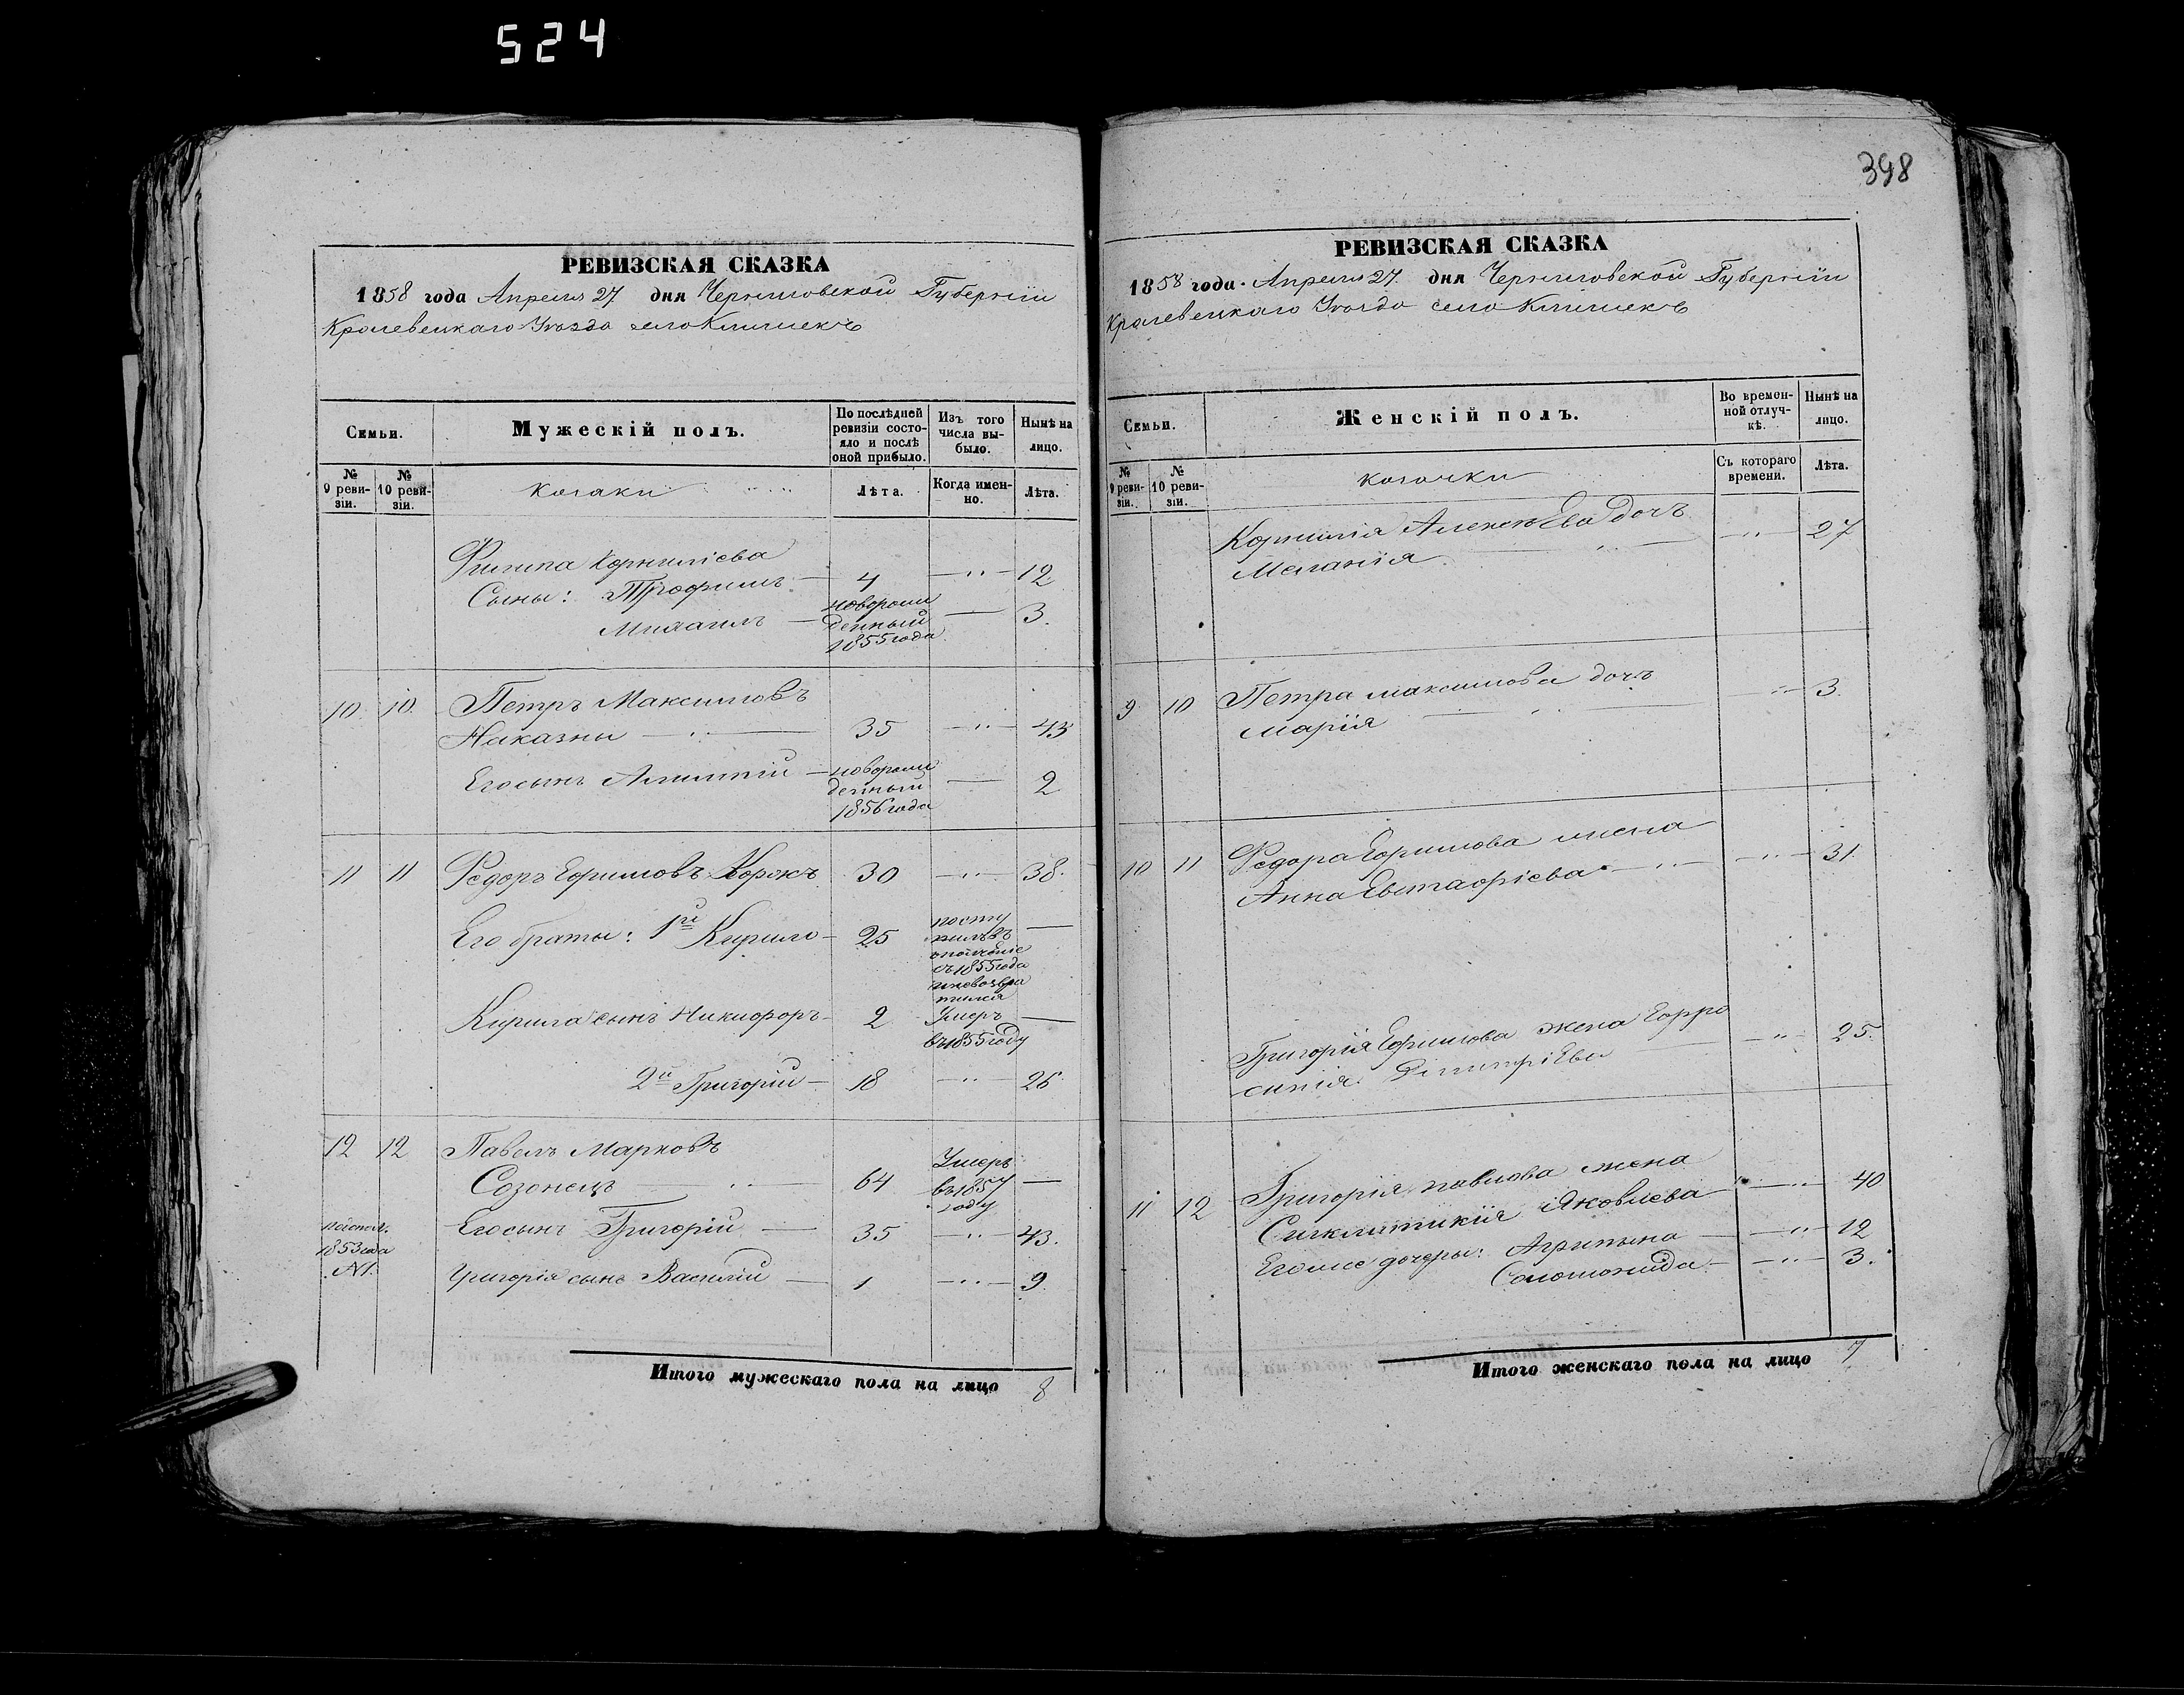 524
РЕВИЗСКАЯ СКАЗКА
1858 года Апреля 27 дня Черниговской Губернии
Кролевецкаго Уезда село Клишекъ
Семьи.
Мужескій полъ.
По послѣдней ревизіи состояло и послѣ оной прибыло.
Изъ того числа выбыло.
Нынѣ на лицо.
№ 9 ревизіи.
№ 10 ревизіи.
козаки
Лѣта.
Когда именно.
Лѣта.
Филипа Корниліева
Сыны: Трофимъ 4 12
Михаилъ новорожденный 1855 года 3.
10. 10. Петръ Максимовъ
Наказны 35 43
Его сынъ новорожденный 1856 года 2
11 11 Федоръ Ефимовъ 30 38.
Его браты: 1й Кирило 25 поступилъ въ ополченіе съ 1855 года и невозвратился
Кирила сынъ Никифоръ 2 Умеръ въ 1855 году
2й Григорій 18 26
12 12 Павелъ Марковъ
Созонецъ 64 Умеръ въ 1857 году
1853 года №1.
Его сынъ Григорій 35 43.
Григорія сынъ Василій 1 9.
Итого мужескаго пола на лицо 8
398
РЕВИЗСКАЯ СКАЗКА
1858 года Апреля 27. дня Черниговской Губерніи
Кролевецкаго Уезда село Клишекъ
Семьи.
Женскій полъ.
Во временной отлучкѣ.
Нынѣ на лицо.
№ 9 ревизіи.
№ 10 ревизіи.
козачки
Съ котораго времени.
Лѣта.
Корнилія Алексѣева дочъ 27
Меланія
9 10 Петра Максимова дочъ 3.
Марія
10 11 Федора Ефимова жена
Анна Евстафіева 31.
Григорія Ефимова жена Ефро
синія Димитріева 25.
11 12 Григорія Павлова жена
Сиклитикія Яковлева 40
Егоже дочеры: Агрипына 12
Соломонида 3.
Итого женскаго пола на лицо 7